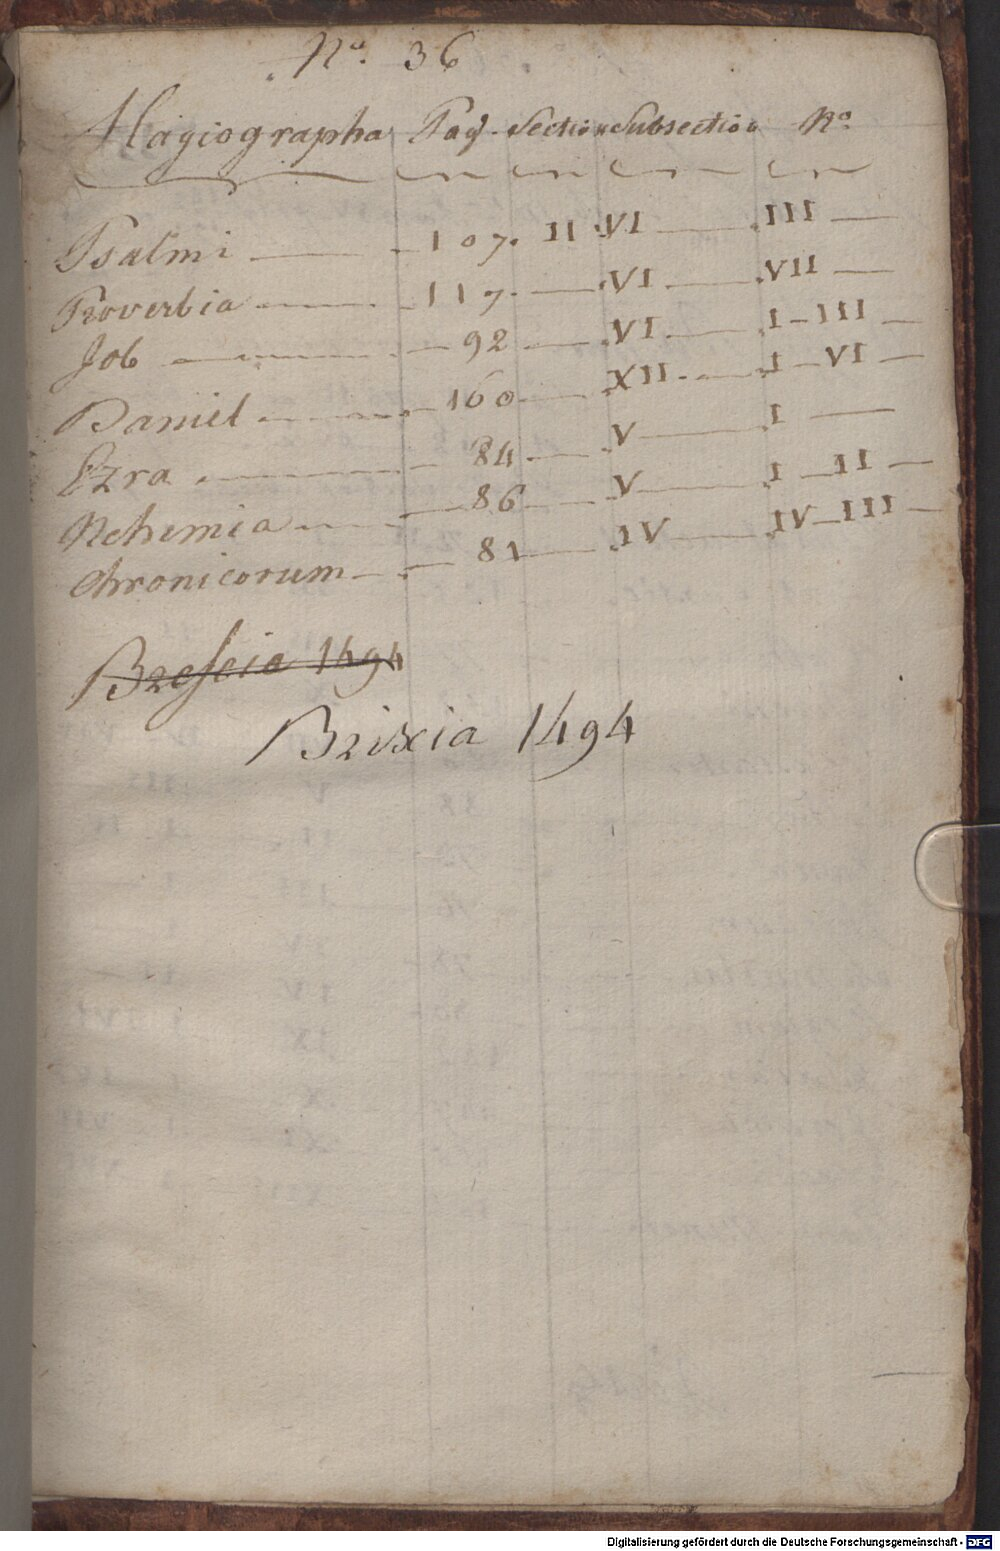 No. 36
Hagiographa Pag. Section Subsection No.
Psalmi — 107. II VI — III —
Proverbia — 117. — VI — VII —
Job — 92 — VI — I–III —
Daniel — 160 — XII. — I–VI —
Ezra — 84 — V — I —
Nehemia — 86 — V — I–II —
Chronicorum — 81 — IV — IV–III —
Brescia 1494
Brixia 1494
Digitalisierung gefördert durch die Deutsche Forschungsgemeinschaft - DFG